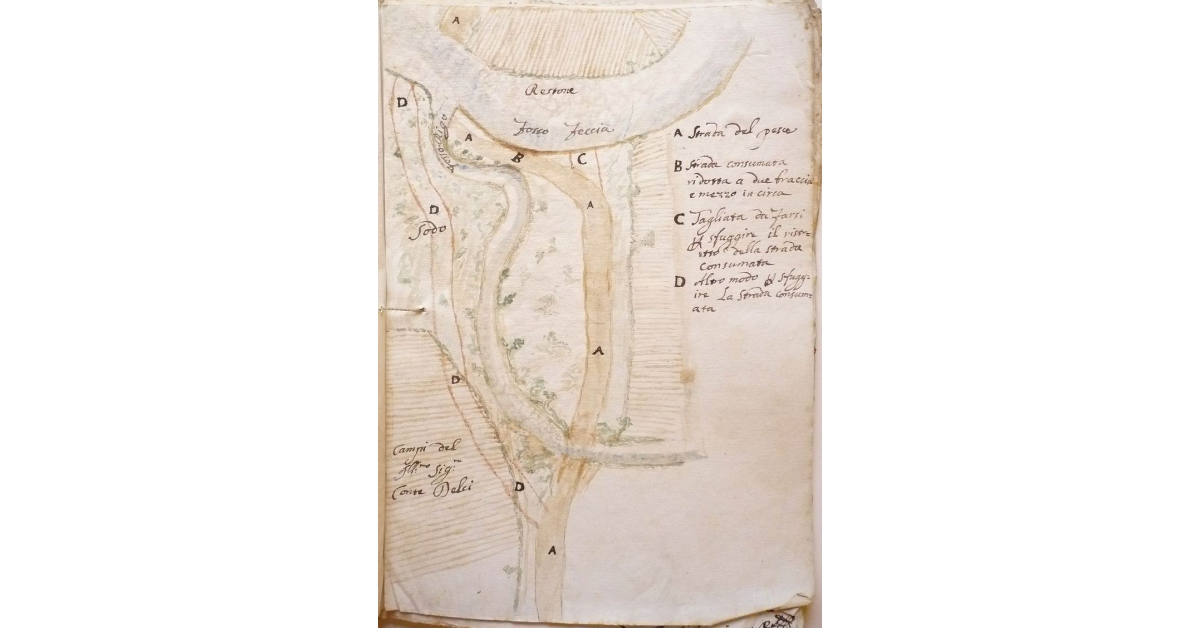 A
D
Restone
Fosso Feccia
A
B
C
A
D
Sodo
A
D
Campi del
Ill.mo Sig.re
Conte Delci
D
A
A Strada del pesce
B Strada consumata
ridotta a due braccia
e mezzo in circa
C Tagliata da farsi
sfuggire il ristr=
etto della strada
consumata
D Altro modo sfugg=
ire La Strada consum=
ata